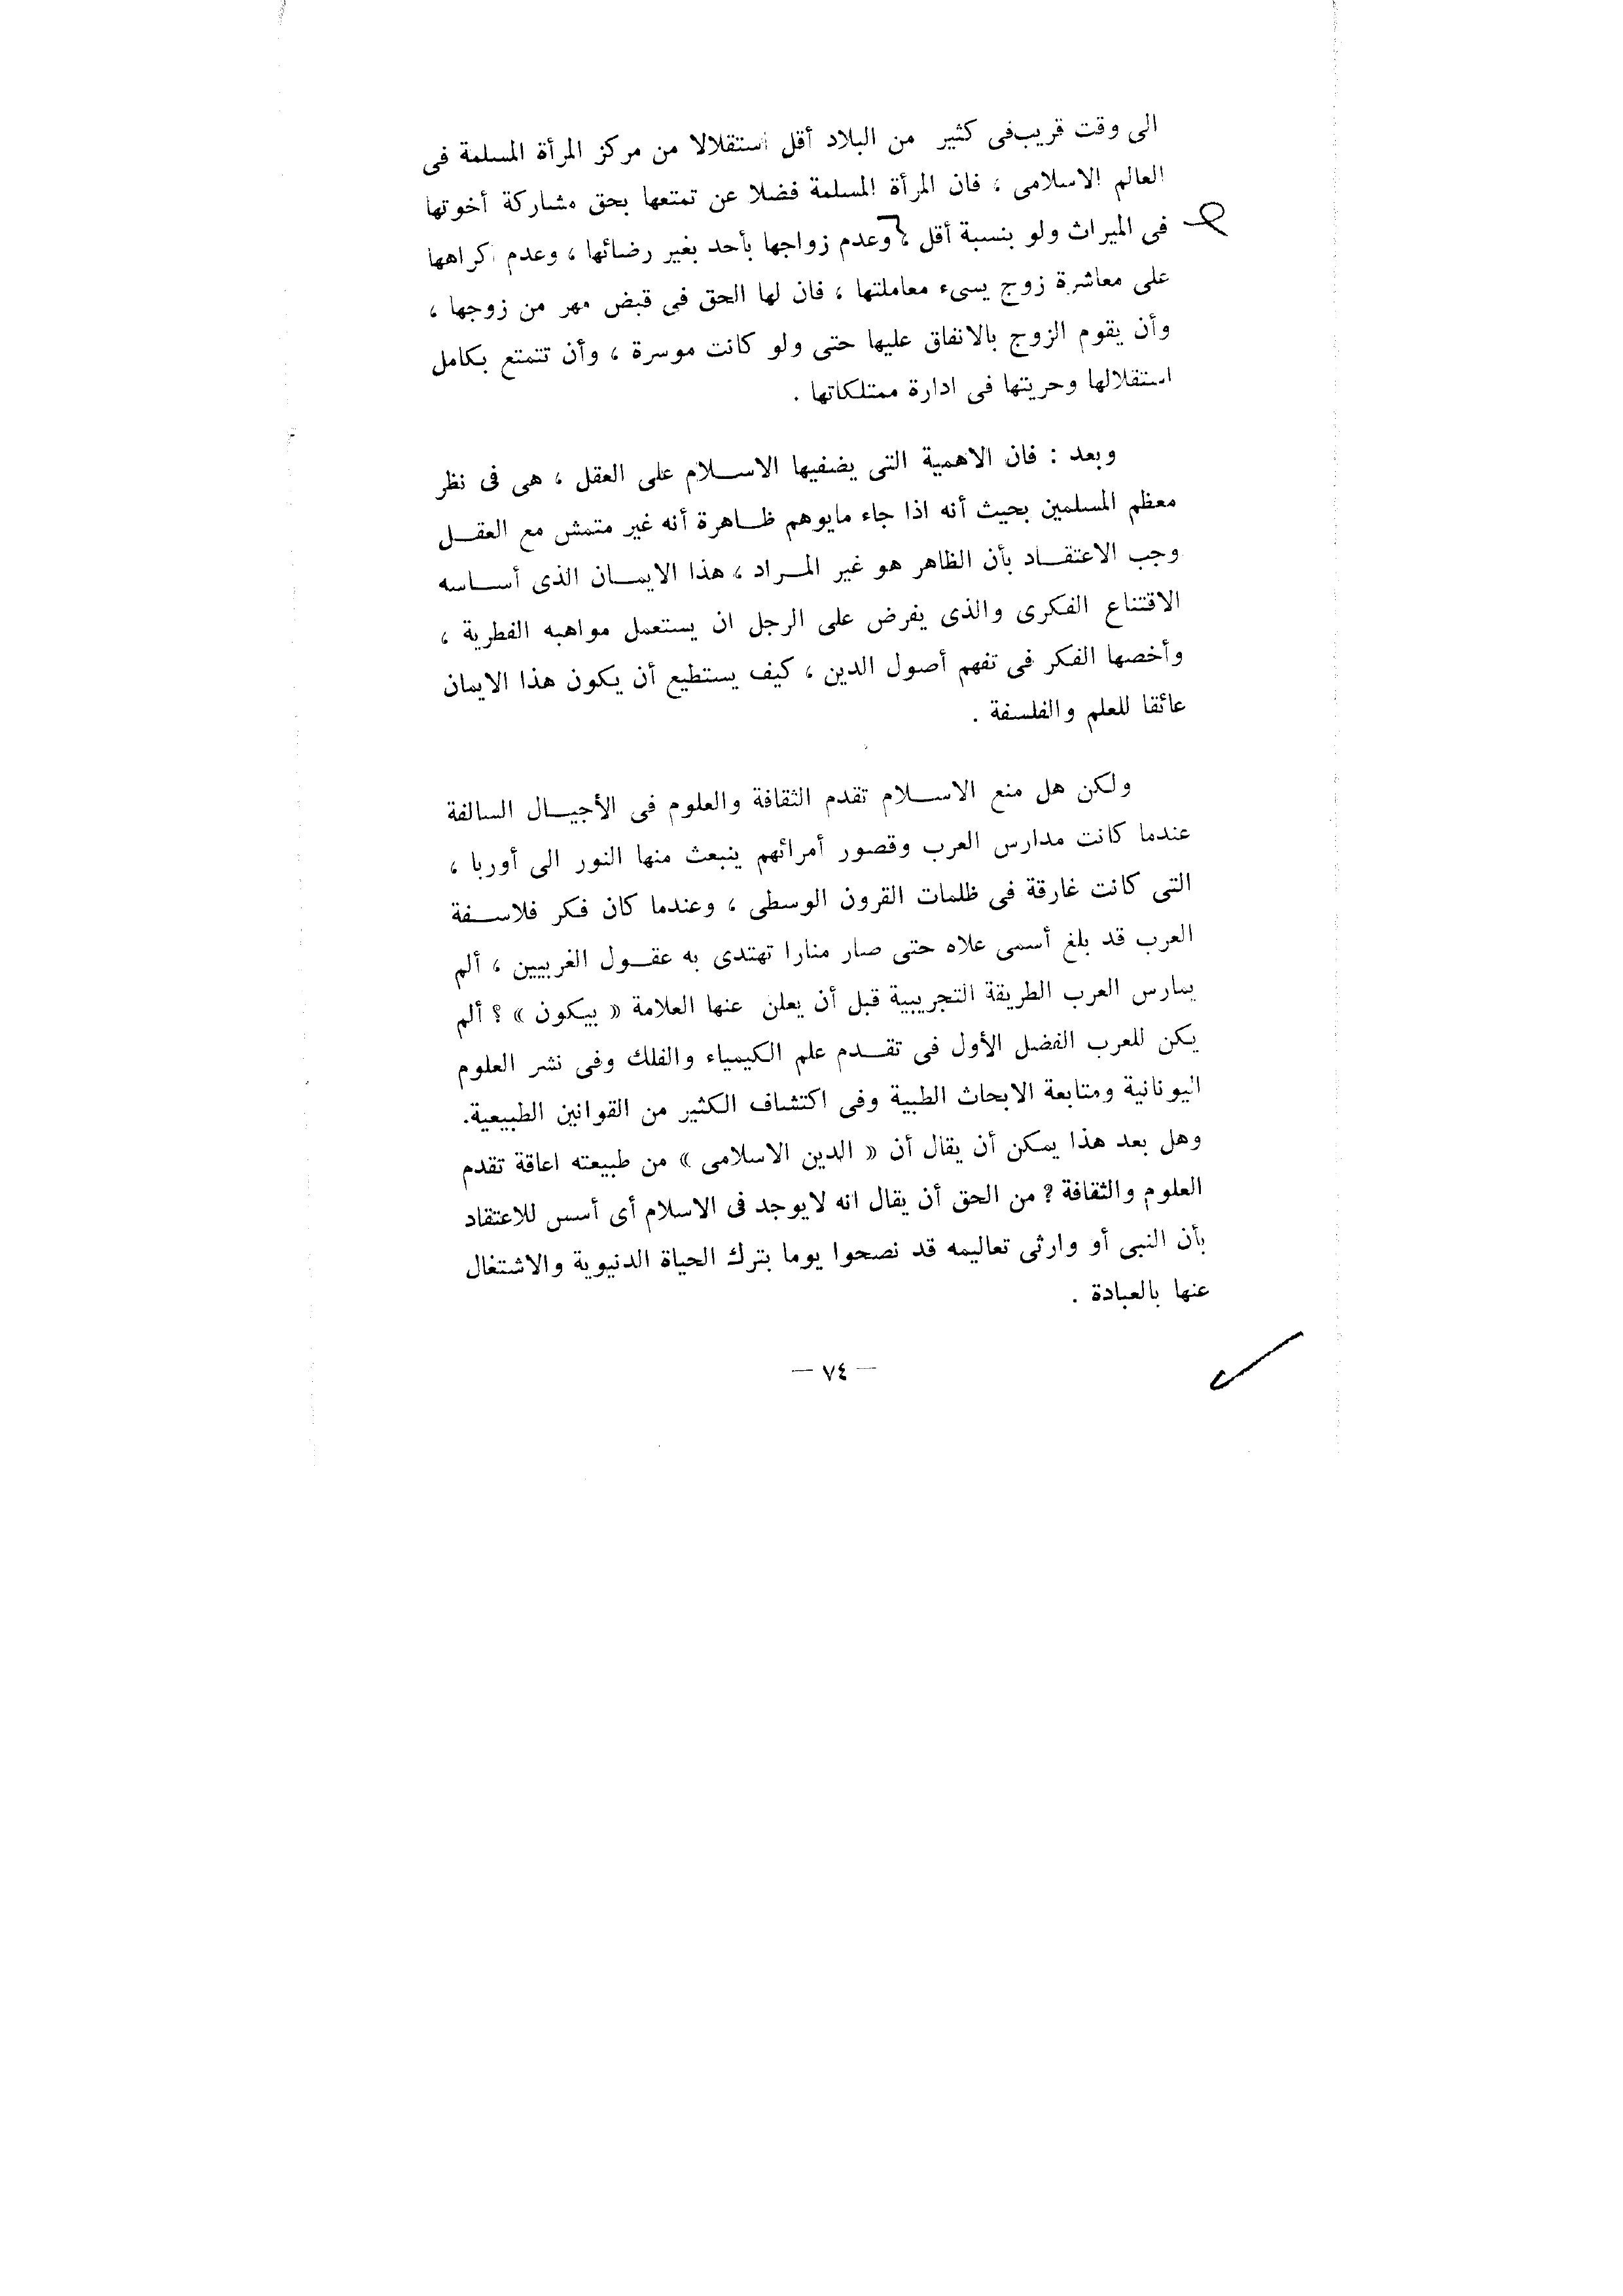 الى وقت قريب فى كثير من البلاد أقل استقلالا من مركز المرأة المسلمة فى
العالم الاسلامى ، فان المرأة المسلمة فضلا عن تمتعها بحق مشاركة أخوتها
فى الميراث ولو بنسبة أقل ، وعدم زواجها بأحد بغير رضائها ، وعدم اكراهها
على معاشرة زوج يسىء معاملتها ، فان لها الحق فى قبض مهر من زوجها ،
وأن يقوم الزوج بالانفاق عليها حتى ولو كانت موسرة ، وأن تتمتع بكامل
استقلالها وحريتها فى ادارة ممتلكاتها .
وبعد : فان الاهمية التى يضفيها الاسلام على العقل ، هى فى نظر
معظم المسلمين بحيث أنه اذا جاء مايوهم ظاهرة أنه غير متمش مع العقل
وجب الاعتقاد بأن الظاهر هو غير المراد ، هذا الايمان الذى أساسه
الاقتناع الفكرى والذى يفرض على الرجل ان يستعمل مواهبه الفطرية ،
وأخصها الفكر فى تفهم أصول الدين ، كيف يستطيع أن يكون هذا الايمان
عائقا للعلم والفلسفة .
ولكن هل منع الاسلام تقدم الثقافة والعلوم فى الأجيال السالفة
عندما كانت مدارس العرب وقصور أمرائهم ينبعث منها النور الى أوربا ،
التى كانت غارقة فى ظلمات القرون الوسطى ، وعندما كان فكر فلاسفة
العرب قد بلغ أسمى علاه حتى صار منارا تهتدى به عقول الغربيين ، ألم
يمارس العرب الطريقة التجريبية قبل أن يعلن عنها العلامة « بيكون » ؟ ألم
يكن للعرب الفضل الأول فى تقدم علم الكيمياء والفلك وفى نشر العلوم
اليونانية ومتابعة الابحاث الطبية وفى اكتشاف الكثير من القوانين الطبيعية.
وهل بعد هذا يمكن أن يقال أن « الدين الاسلامى » من طبيعته اعاقة تقدم
العلوم والثقافة ؟ من الحق أن يقال انه لايوجد فى الاسلام أى أسس للاعتقاد
بأن النبى أو وارثى تعاليمه قد نصحوا يوما بترك الحياة الدنيوية والاشتغال
عنها بالعبادة .
— ٧٤ —